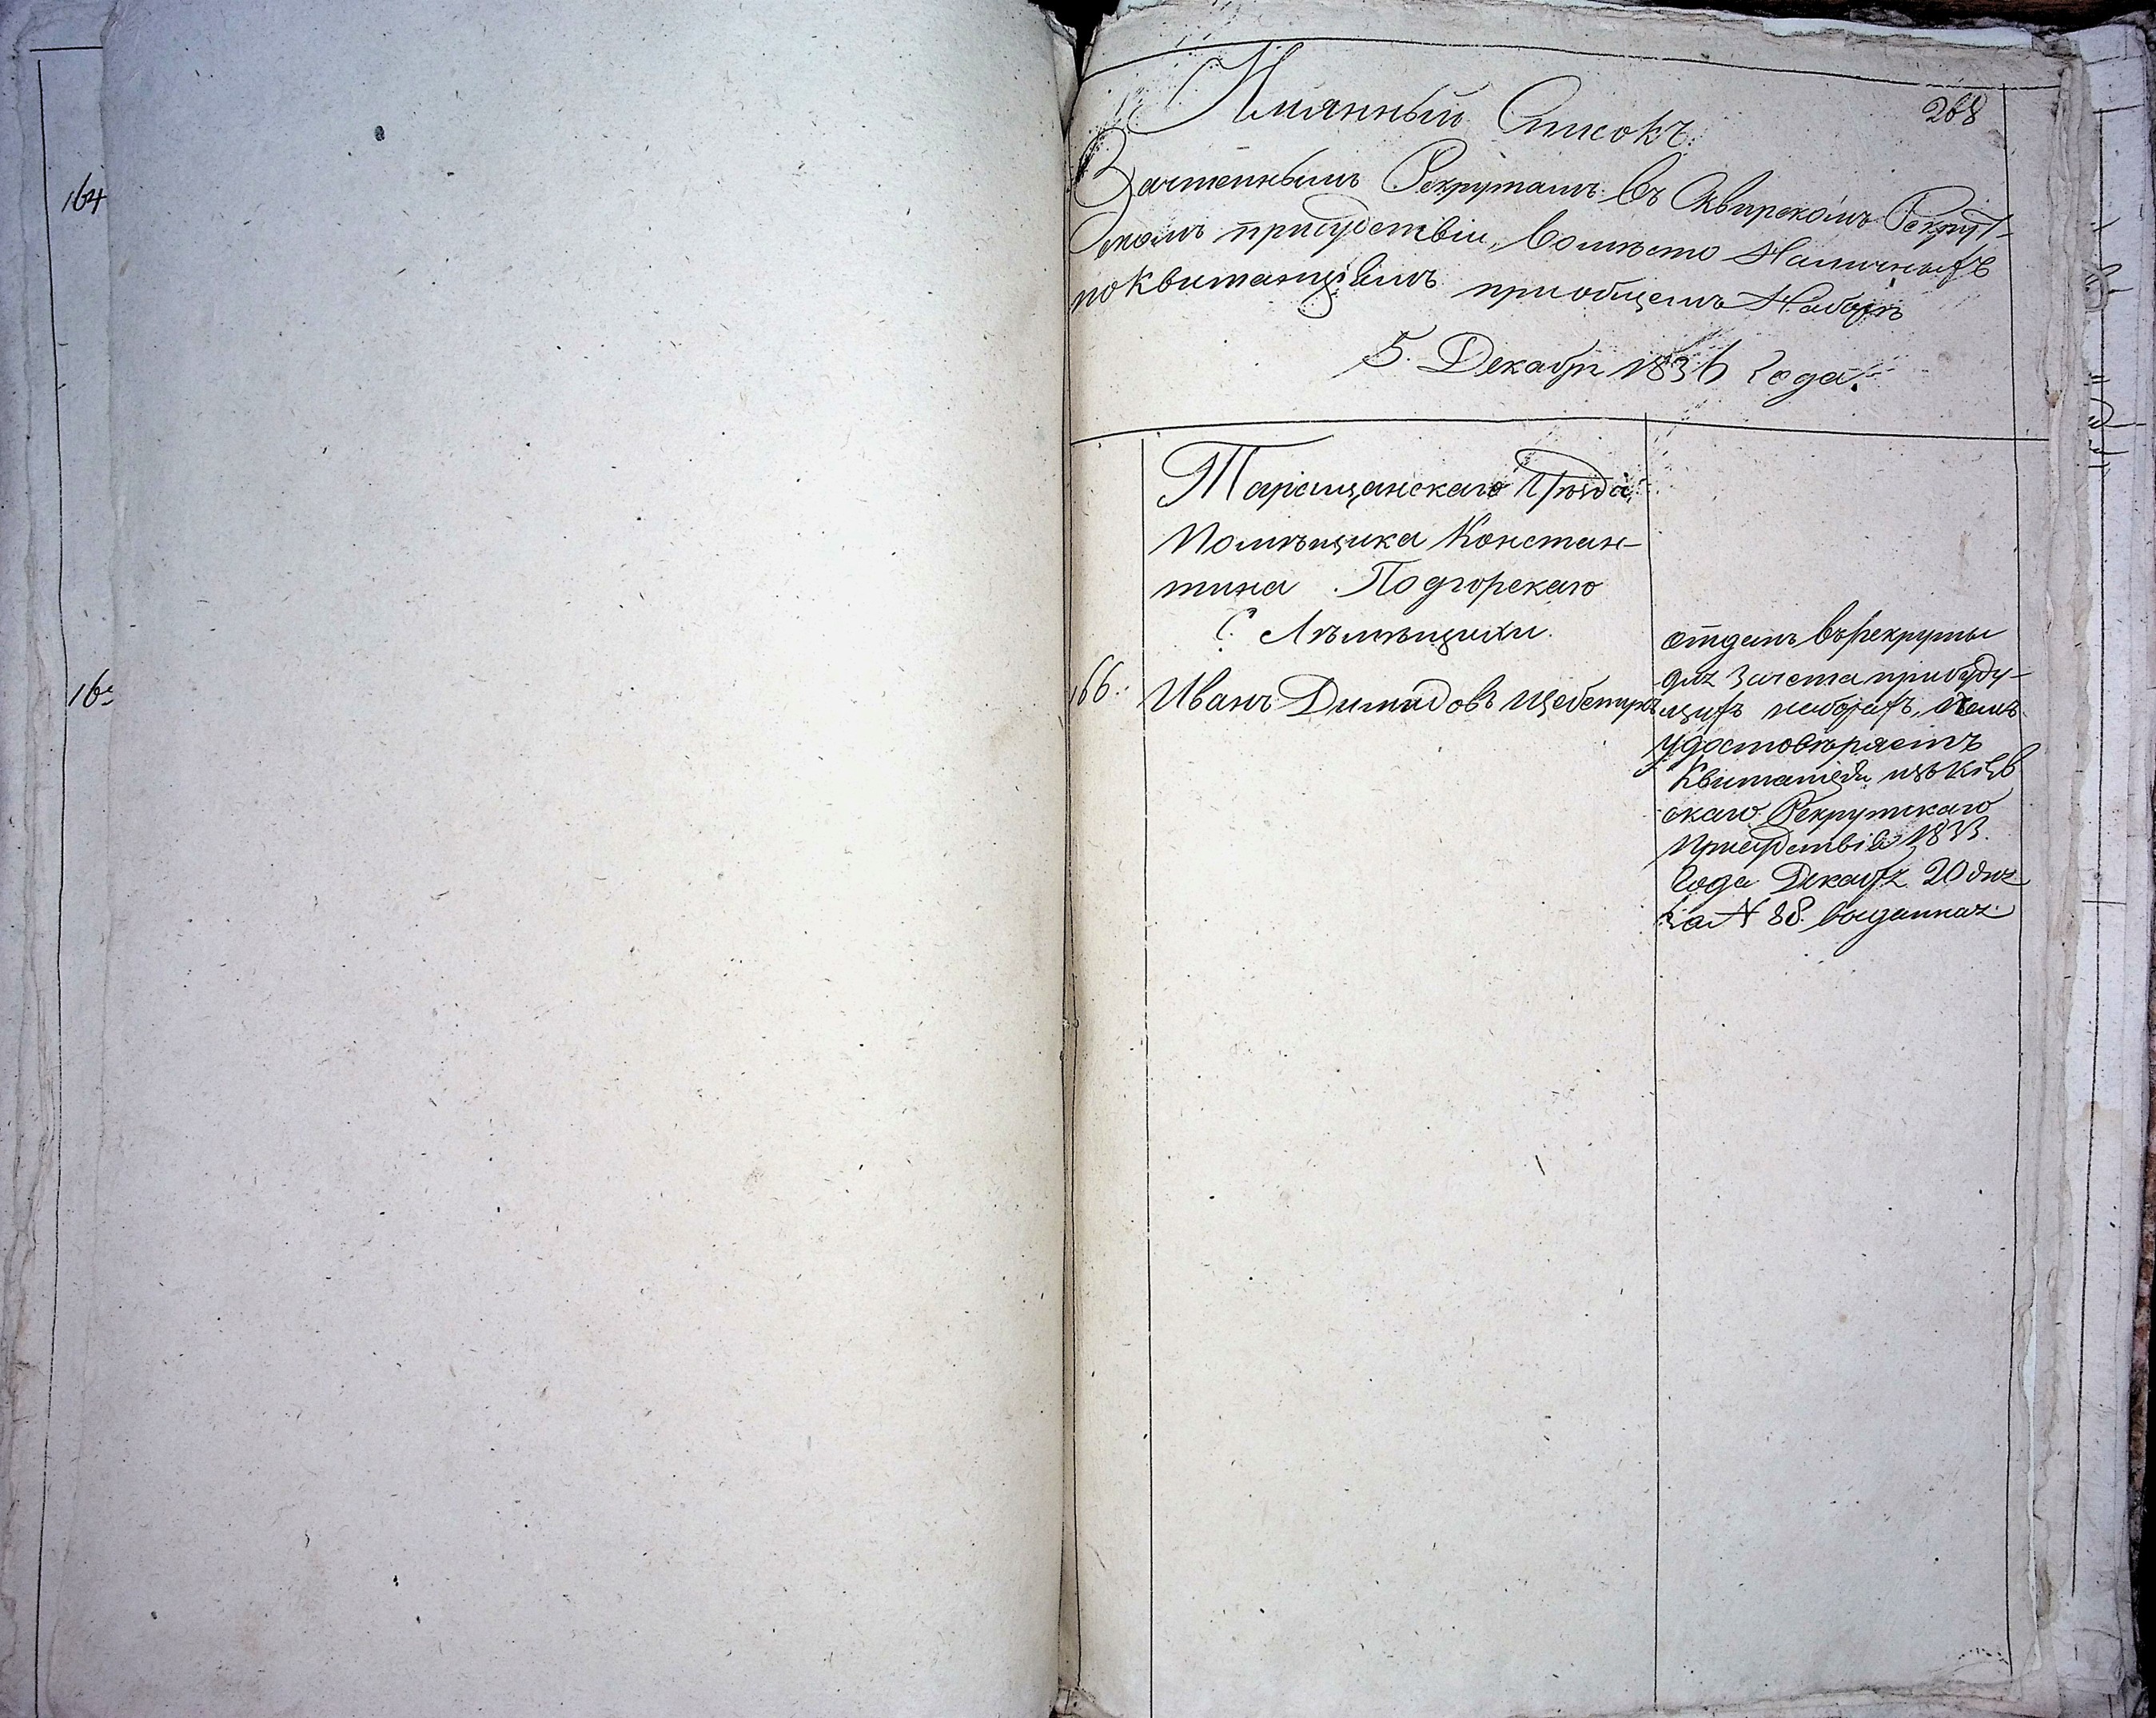 164
16
268
Имянный Списокъ
Зачтеннымъ Рекрутамъ въ Сквирскомъ Рекрут-
скомъ присудствіи, вомѣсто Наличныхъ
по квитанціямъ приобщемъ Наборѣ
5. Декабря 1836 года.
Таращанскаго Уѣзда
Помѣщика Констан-
тина Подгорскаго
С.
166. Иванъ Димидовъ
отданъ въ рекруты
для Зачета при буду-
щихъ наборахъ, о чемъ
удостовѣряетъ
Квитанція изъ Кіев
скаго Рекрутскаго
Присудствія 1833.
года Декабря 20 дня
за N 88. выданная